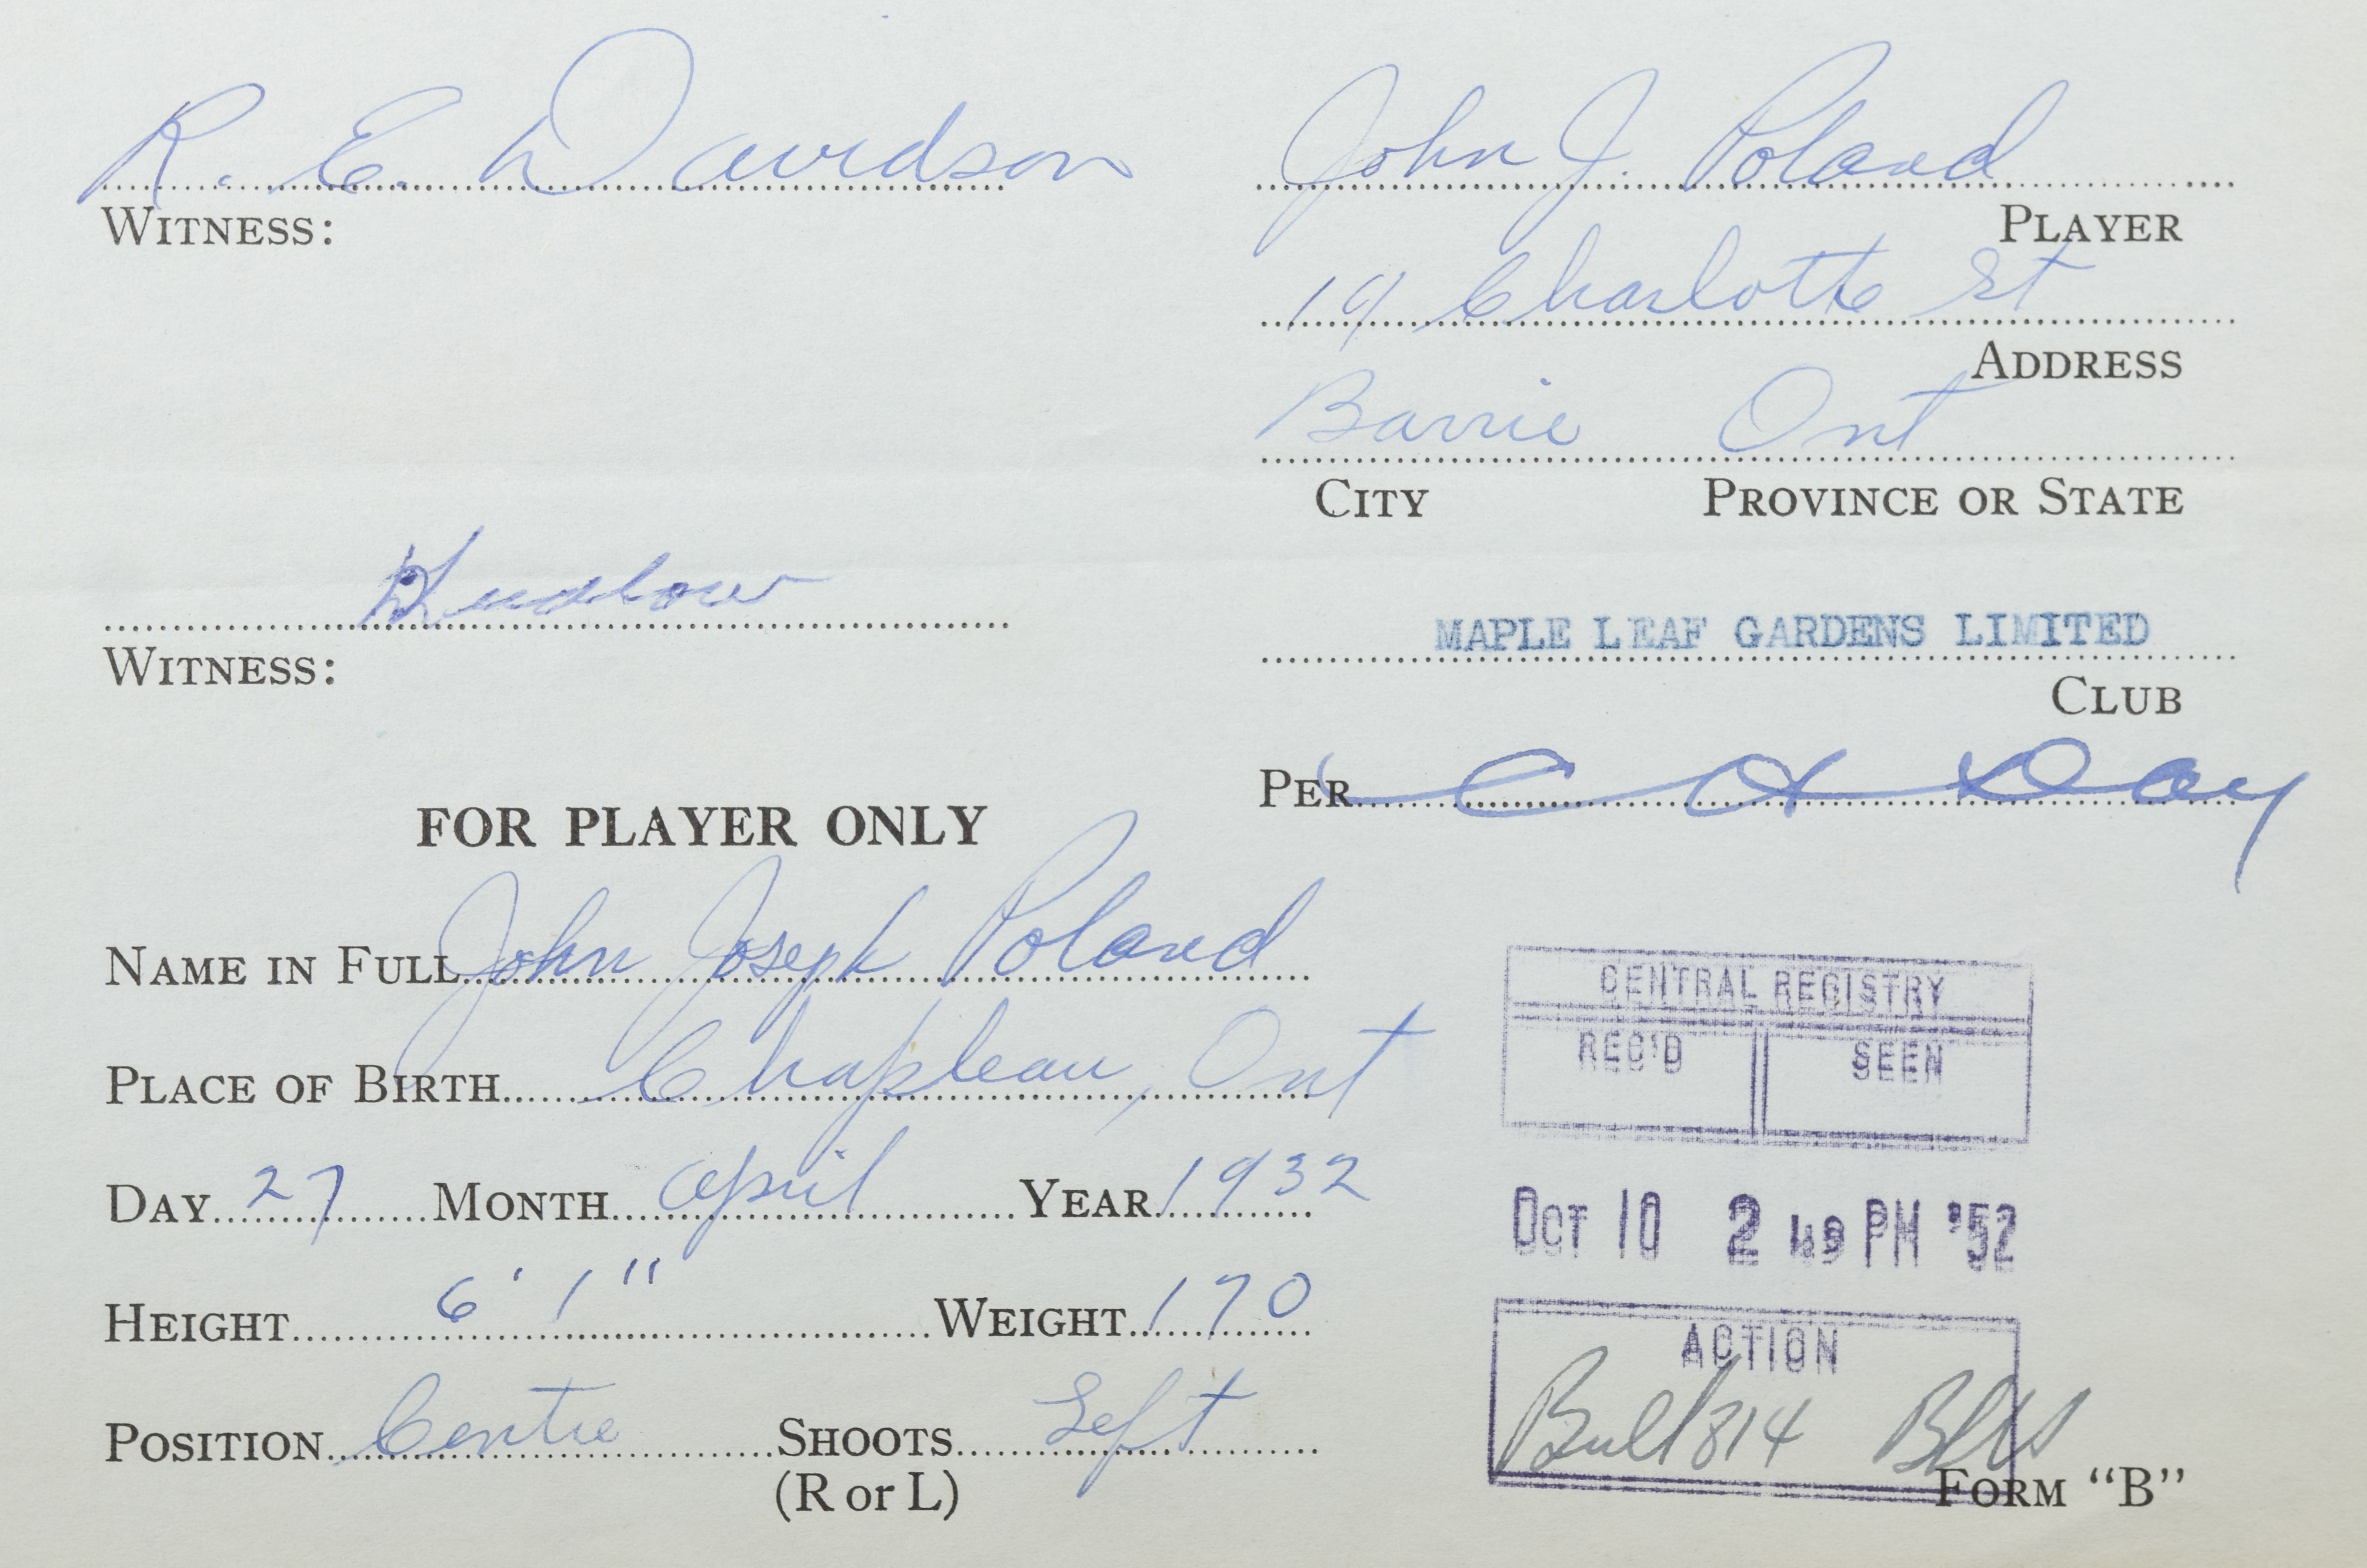 R. E. Davidson
WITNESS:
John J. Poland
PLAYER
19 Charlotte St
ADDRESS
Barrie Ont
CITY PROVINCE OR STATE
WITNESS:
MAPLE LEAF GARDENS LIMITED
CLUB
PER C H Day
FOR PLAYER ONLY
NAME IN FULL John Joseph Poland
PLACE OF BIRTH Chapleau, Ont
DAY 27 MONTH April YEAR 1932
HEIGHT 6' 1" WEIGHT 170
POSITION Centre SHOOTS Left
(R or L)
CENTRAL REGISTRY
REC'D SEEN
OCT 10 2 49 PM '52
ACTION
Bull 814
FORM "B"